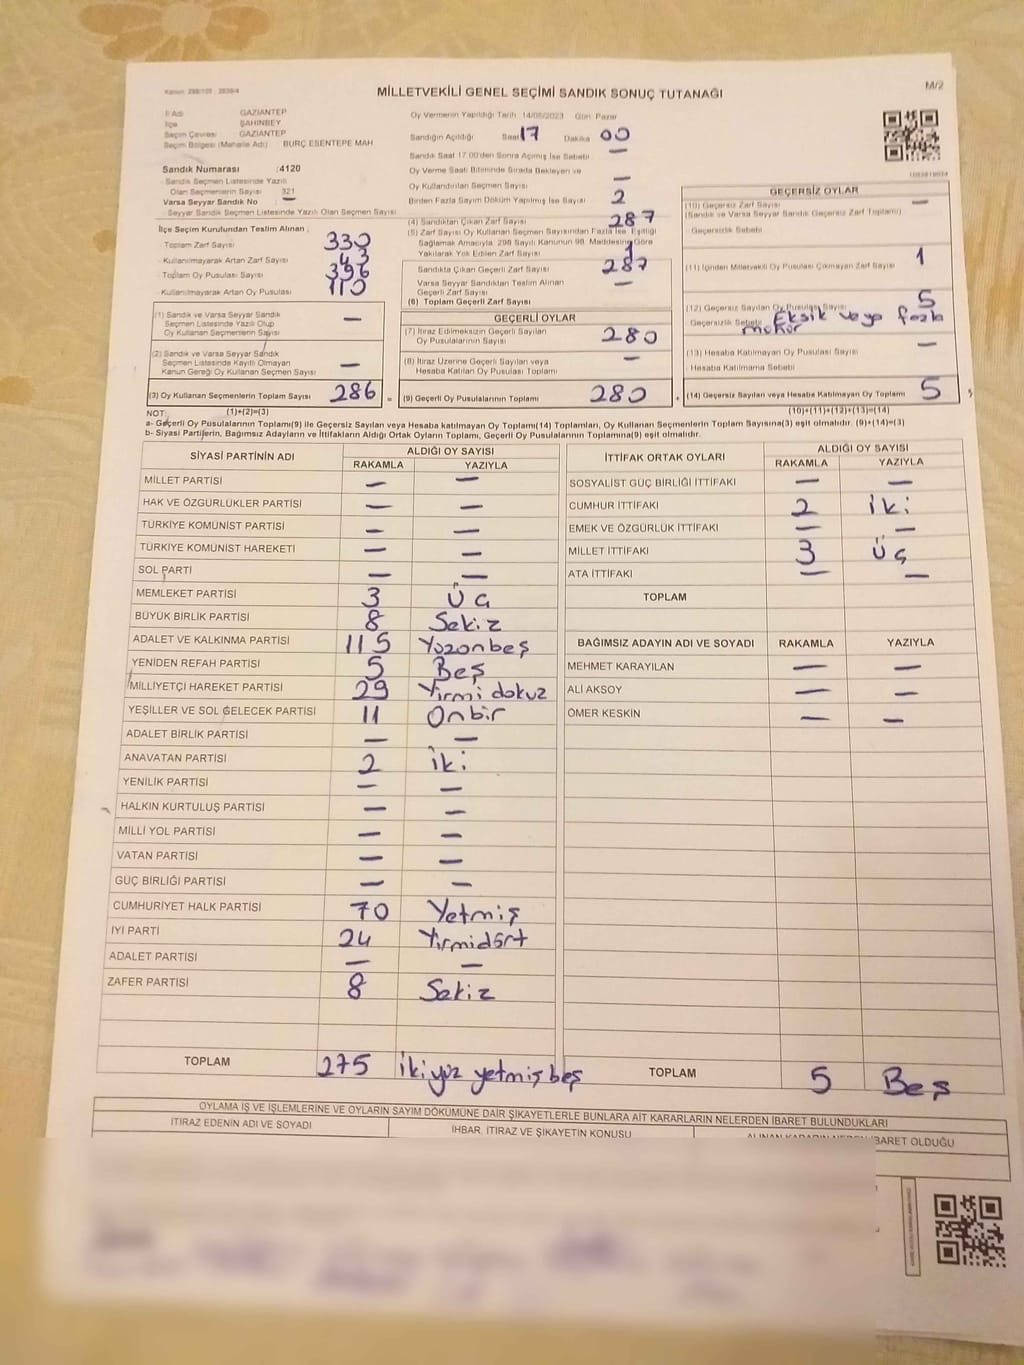 M/2
MİLLETVEKİLİ GENEL SEÇİMİ SANDIK SONUÇ TUTANAĞI
İl Adı GAZİANTEP
İlçe ŞAHİNBEY
Seçim Çevresi GAZİANTEP
Seçim Bölgesi (Mahalle Adı) BURÇ ESENTEPE MAH
Sandık Numarası :4120
Sandık Seçmen Listesinde Yazılı
Olan Seçmenlerin Sayısı 321
Varsa Seyyar Sandık No —
Seyyar Sandık Seçmen Listesinde Yazılı Olan Seçmen Sayısı
İlçe Seçim Kurulundan Teslim Alınan
Toplam Zarf Sayısı 330
Kullanılmayarak Artan Zarf Sayısı 43
Toplam Oy Pusulası Sayısı 396
Kullanılmayarak Artan Oy Pusulası 110
(1) Sandık ve Varsa Seyyar Sandık
Seçmen Listesinde Yazılı Olup
Oy Kullanan Seçmenlerin Sayısı —
(2) Sandık ve Varsa Seyyar Sandık
Seçmen Listesinde Kayıtlı Olmayan
Kanun Gereği Oy Kullanan Seçmen Sayısı —
(3) Oy Kullanan Seçmenlerin Toplam Sayısı 286 =
Oy Vermenin Yapıldığı Tarih 14/05/2023 Gün Pazar
Sandığın Açıldığı Saat 17 Dakika 00
Sandık Saat 17.00'den Sonra Açılmış İse Sebebi —
Oy Verme Saati Bitiminde Sırada Bekleyen ve
Oy Kullandırılan Seçmen Sayısı —
Birden Fazla Sayım Döküm Yapılmış İse Sayısı 2
(4) Sandıktan Çıkan Zarf Sayısı 287
(5) Zarf Sayısı Oy Kullanan Seçmen Sayısından Fazla İse Eşitliği
Sağlamak Amacıyla, 298 Sayılı Kanunun 98. Maddesine Göre
Yakılarak Yok Edilen Zarf Sayısı 1
Sandıkta Çıkan Geçerli Zarf Sayısı 287
Varsa Seyyar Sandıktan Teslim Alınan
Geçerli Zarf Sayısı —
(6) Toplam Geçerli Zarf Sayısı
GEÇERLİ OYLAR
(7) İtiraz Edilmeksizin Geçerli Sayılan
Oy Pusulalarının Sayısı 280
(8) İtiraz Üzerine Geçerli Sayılan veya
Hesaba Katılan Oy Pusulası Toplamı —
(9) Geçerli Oy Pusulalarının Toplamı 280 +
GEÇERSİZ OYLAR
(10) Geçersiz Zarf Sayısı —
(Sandık ve Varsa Seyyar Sandık Geçersiz Zarf Toplamı)
Geçersizlik Sebebi
(11) İçinden Milletvekili Oy Pusulası Çıkmayan Zarf Sayısı 1
(12) Geçersiz Sayılan Oy Pusulası Sayısı 5
Geçersizlik Sebebi Eksik veya fazla
mühür
(13) Hesaba Katılmayan Oy Pusulası Sayısı —
Hesaba Katılmama Sebebi
(14) Geçersiz Sayılan veya Hesaba Katılmayan Oy Toplamı 5
NOT: (1)+(2)=(3) (10)+(11)+(12)+(13)=(14)
a- Geçerli Oy Pusulalarının Toplamı(9) ile Geçersiz Sayılan veya Hesaba katılmayan Oy Toplamı(14) Toplamları, Oy Kullanan Seçmenlerin Toplam Sayısına(3) eşit olmalıdır. (9)+(14)=(3)
b- Siyasi Partilerin, Bağımsız Adayların ve İttifakların Aldığı Ortak Oyların Toplamı, Geçerli Oy Pusulalarının Toplamına(9) eşit olmalıdır.
SİYASİ PARTİNİN ADI ALDIĞI OY SAYISI
RAKAMLA YAZIYLA
MİLLET PARTİSİ — —
HAK VE ÖZGÜRLÜKLER PARTİSİ — —
TÜRKİYE KOMÜNİST PARTİSİ — —
TÜRKİYE KOMÜNİST HAREKETİ — —
SOL PARTİ — —
MEMLEKET PARTİSİ 3 Üç
BÜYÜK BİRLİK PARTİSİ 8 Sekiz
ADALET VE KALKINMA PARTİSİ 115 Yüzonbeş
YENİDEN REFAH PARTİSİ 5 Beş
MİLLİYETÇİ HAREKET PARTİSİ 29 Yirmi dokuz
YEŞİLLER VE SOL GELECEK PARTİSİ 11 Onbir
ADALET BİRLİK PARTİSİ — —
ANAVATAN PARTİSİ 2 İki
YENİLİK PARTİSİ — —
HALKIN KURTULUŞ PARTİSİ — —
MİLLİ YOL PARTİSİ — —
VATAN PARTİSİ — —
GÜÇ BİRLİĞİ PARTİSİ — —
CUMHURİYET HALK PARTİSİ 70 Yetmiş
İYİ PARTİ 24 Yirmidört
ADALET PARTİSİ — —
ZAFER PARTİSİ 8 Sekiz
TOPLAM 275 İkiyüz yetmiş beş
İTTİFAK ORTAK OYLARI ALDIĞI OY SAYISI
RAKAMLA YAZIYLA
SOSYALİST GÜÇ BİRLİĞİ İTTİFAKI — —
CUMHUR İTTİFAKI 2 İki
EMEK VE ÖZGÜRLÜK İTTİFAKI — —
MİLLET İTTİFAKI 3 Üç
ATA İTTİFAKI — —
TOPLAM
BAĞIMSIZ ADAYIN ADI VE SOYADI RAKAMLA YAZIYLA
MEHMET KARAYILAN — —
ALİ AKSOY — —
ÖMER KESKİN — —
TOPLAM 5 Beş
OYLAMA İŞ VE İŞLEMLERİNE VE OYLARIN SAYIM DÖKÜMÜNE DAİR ŞİKAYETLERLE BUNLARA AİT KARARLARIN NELERDEN İBARET BULUNDUKLARI
İTİRAZ EDENİN ADI VE SOYADI İHBAR, İTİRAZ VE ŞİKAYETİN KONUSU ALINAN KARARIN NEDEN İBARET OLDUĞU